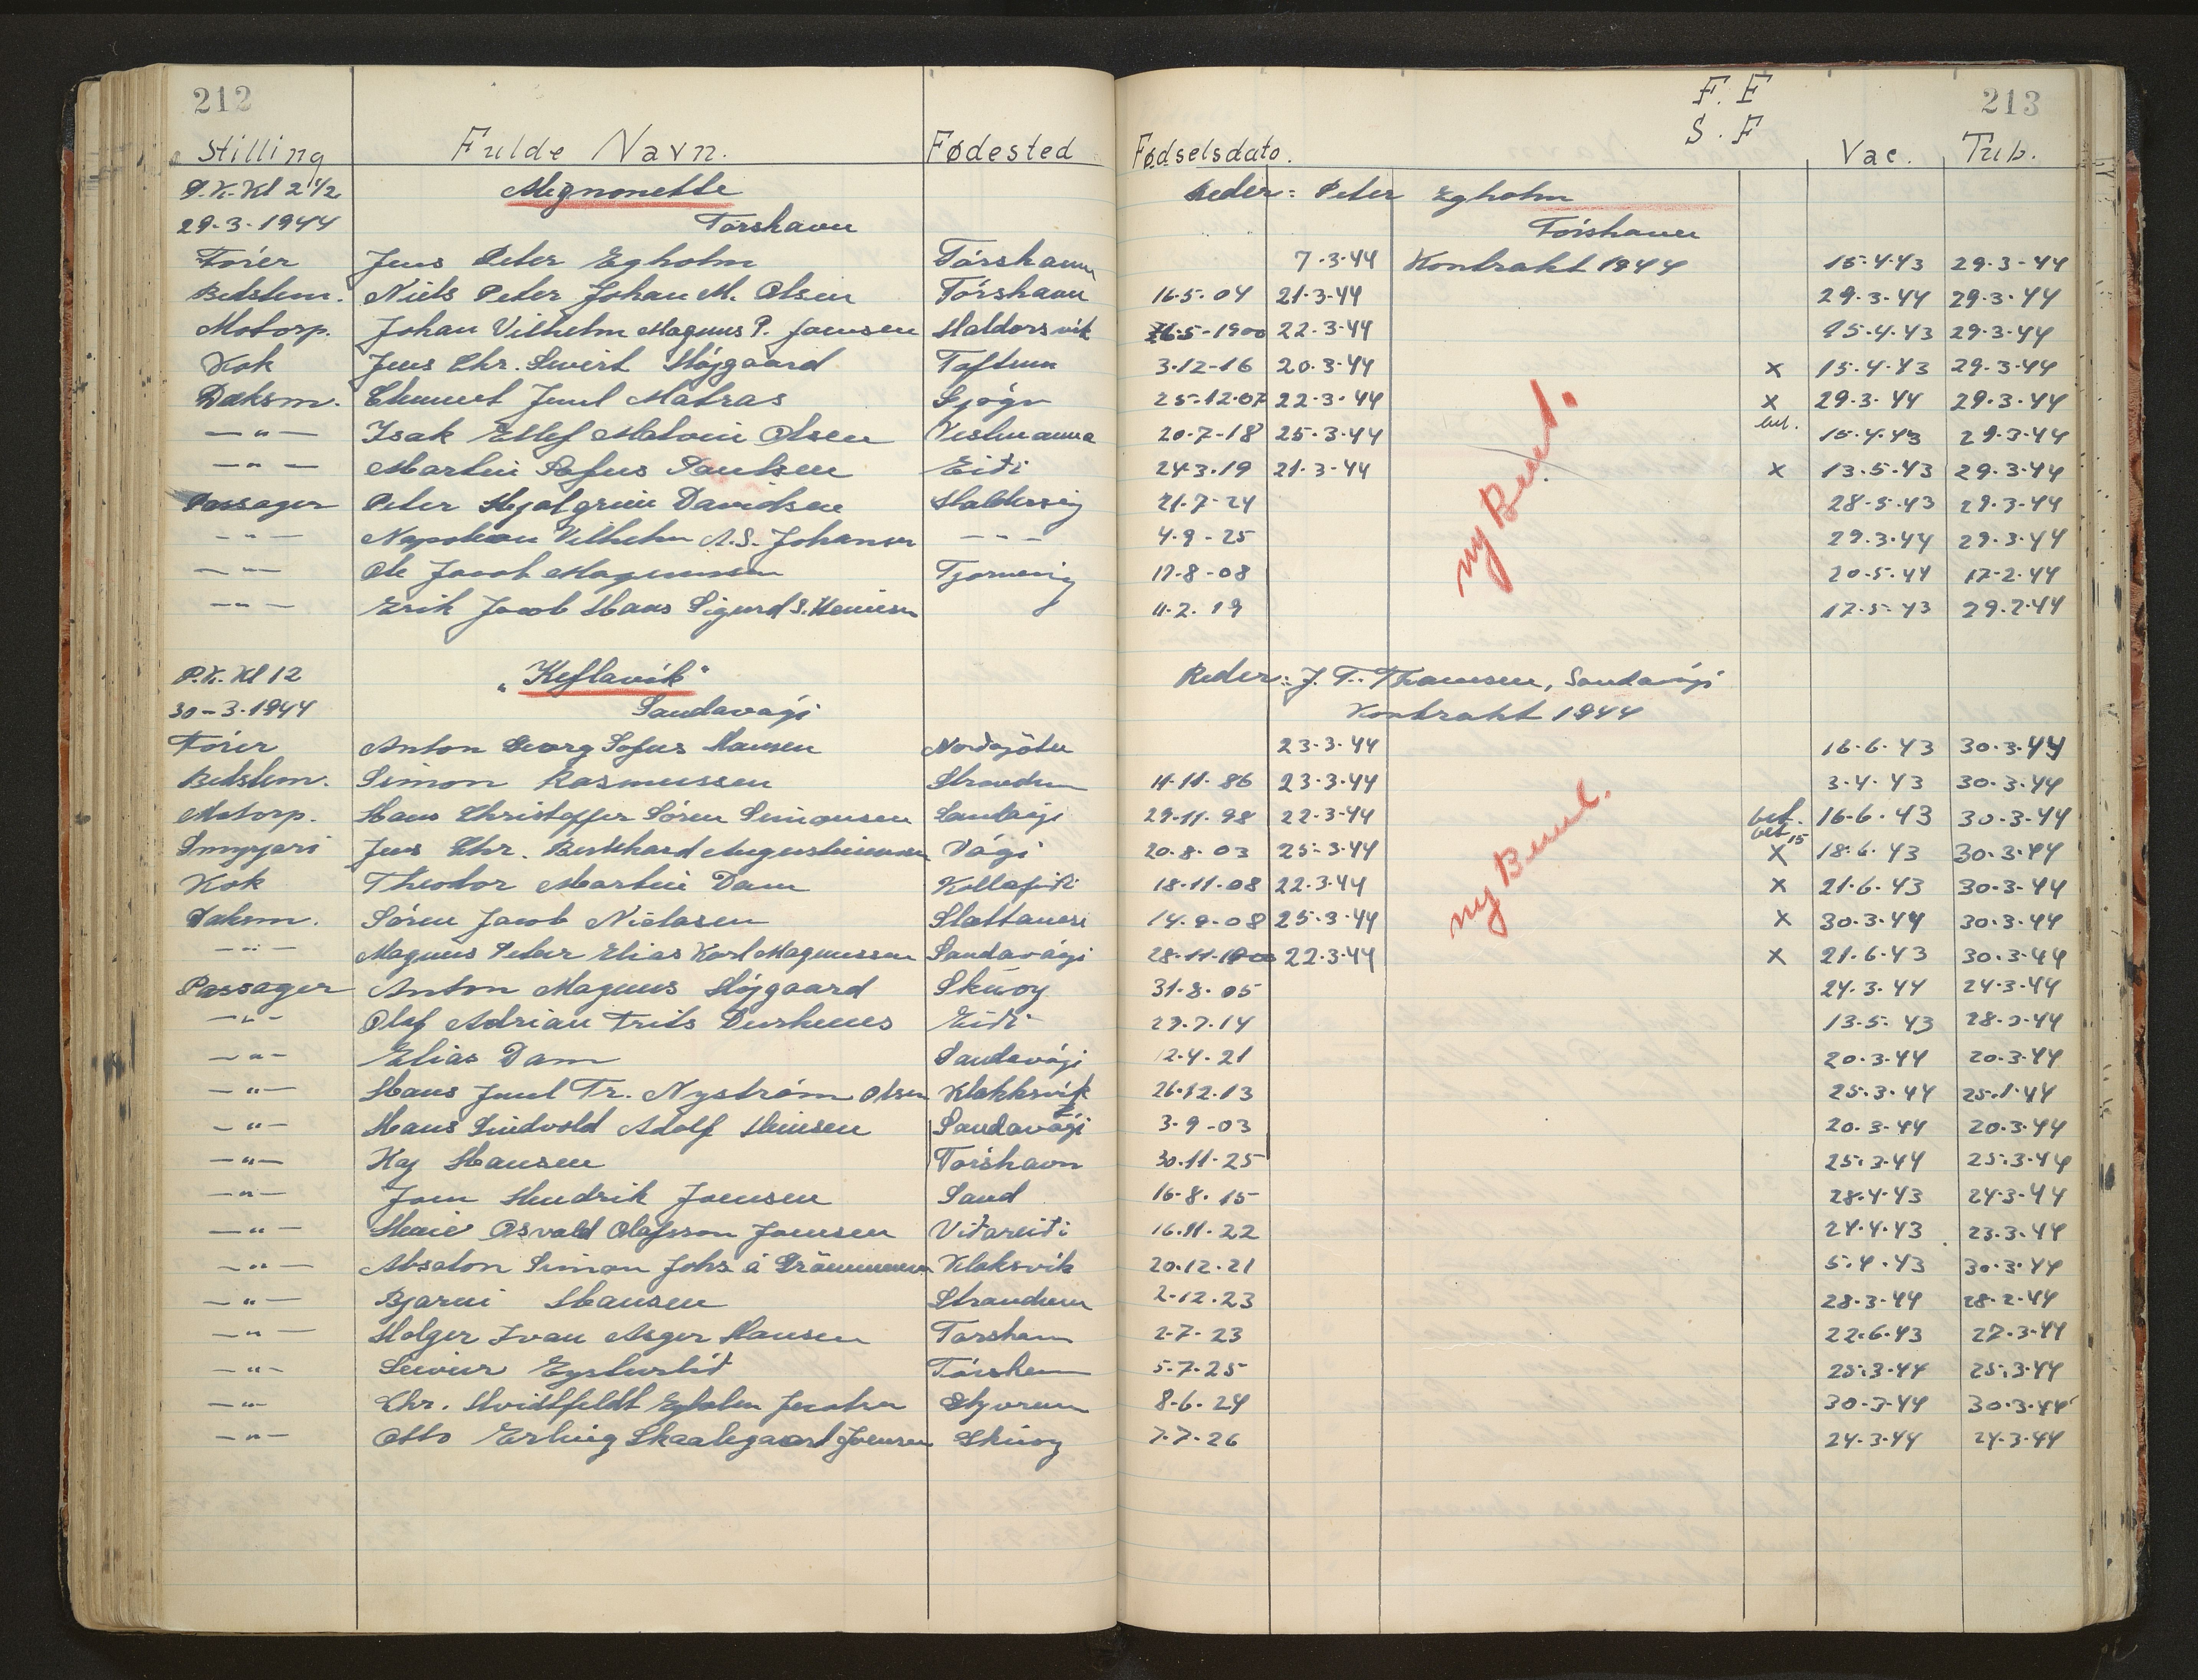 212
F. F
213
S. F
Stilling Fulde Navn. Fødested Fødselsdato. Vac. Tub.
P.K. Kl 2 1/2 Mignonette Reder: Peter Egholm
29-3-1944 Tórshavn Tórshavn
Fører Jens Peter Egholm Tórshavn 7-3-44 Kontrakt 1944 15-4-43 29-3-44
Bedstem. Niels Peter Johan M. Olsen Tórshavn 16-5-04 21-3-44 29-3-44 29-3-44
Motorp. Johan Vilhelm Magnus P. Joensen Haldorsvík 26-5-1900 22-3-44 15-4-43 29-3-44
Kok Jens Chr. Højgaard Toftum 3-12-16 20-3-44 x 15-4-43 29-3-44
Dæksm. Clement Juul Matras Gjógv 25-12-07 22-3-44 x 29-3-44 29-3-44
—"— Isak Ellef Melvin Olsen Vestmanna 20-7-18 25-3-44 bet. 15-4-43 29-3-44
—"— Martin Rofus Poulsen Eiði 24-3-19 21-3-44 x 13-5-43 29-3-44
Passager Peter Hjalgrim Davidsen Haldersvig 21-7-24 28-5-43 29-3-44
—"— Napoleon Vilhelm A.S. Johansen —"— 4-9-25 29-3-44 29-3-44
—"— Ole Jacob Magnussen Tjørnevig 17-8-08 20-5-44 17-2-44
—"— Erik Jacob Hans Sigurd S. 11-2-19 17-5-43 29-2-44
ny Bml.
P.K. Kl 12 "Keflavík" Reder: J. F. Thomsen, Sandavági
30-3-1944 Sandavági Kontrakt 1944
Fører Anton Georg Sofus Hansen Norðagøtu 23-3-44 16-6-43 30-3-44
Bedstem. Simon Rasmussen Strendur 11-11-86 23-3-44 3-4-43 30-3-44
Motorp. Hans Christoffer Søren Simonsen Sandvági 29-11-98 22-3-44 bet. 16-6-43 30-3-44
Smyrjari Jens Chr. Berkhard Augustinussen Vági 20-8-03 25-3-44 bet 15 x 18-6-43 30-3-44
Kok Theodor Martin Dam Kollafirði 18-11-08 22-3-44 x 21-6-43 30-3-44
Dæksm. Søren Jacob Niclasen Slættanesi 14-9-08 25-3-44 x 30-3-44 30-3-44
—"— Magnus Peter Elias Karl Magnussen Sandavági 28-11-1900 22-3-44 x 21-6-43 30-3-44
Passager Anton Magnus Højgaard Skúvoy 31-8-05 24-3-44 24-3-44
—"— Olaf Adrian Frits Durhuus Eiði 29-7-14 13-5-43 28-3-44
—"— Elias Dam Sandavági 12-4-21 20-3-44 20-3-44
—"— Hans Juul Tr. Nystrøm Olsen Klakksvík 26-12-13 25-3-44 25-1-44
—"— Hans Lindvold Adolf Heinesen Sandavági 3-9-03 20-3-44 20-3-44
—"— Kaj Hansen Tórshavn 30-11-25 25-3-44 25-3-44
—"— Joen Hendrik Joensen Sand 16-8-15 28-4-43 24-3-44
—"— Osvald Olafsson Joensen Viðareiði 16-11-22 24-4-43 23-3-44
—"— Absalon Simon Johs á Klaksvík 20-12-21 5-4-43 30-3-44
—"— Bjarni Hansen Strendur 2-12-23 28-3-44 28-2-44
—"— Holger Ivan Asger Hansen Tórshavn 2-7-23 22-6-43 27-3-44
—"— Eysturlíð Tórshavn 5-7-25 25-3-44 25-3-44
—"— Chr. Hvidtfeldt Egholm Jacobsen 8-6-24 30-3-44 30-3-44
—"— Otto Erling Skaalegaard Joensen Skúvoy 7-7-26 24-3-44 24-3-44
ny Bml.